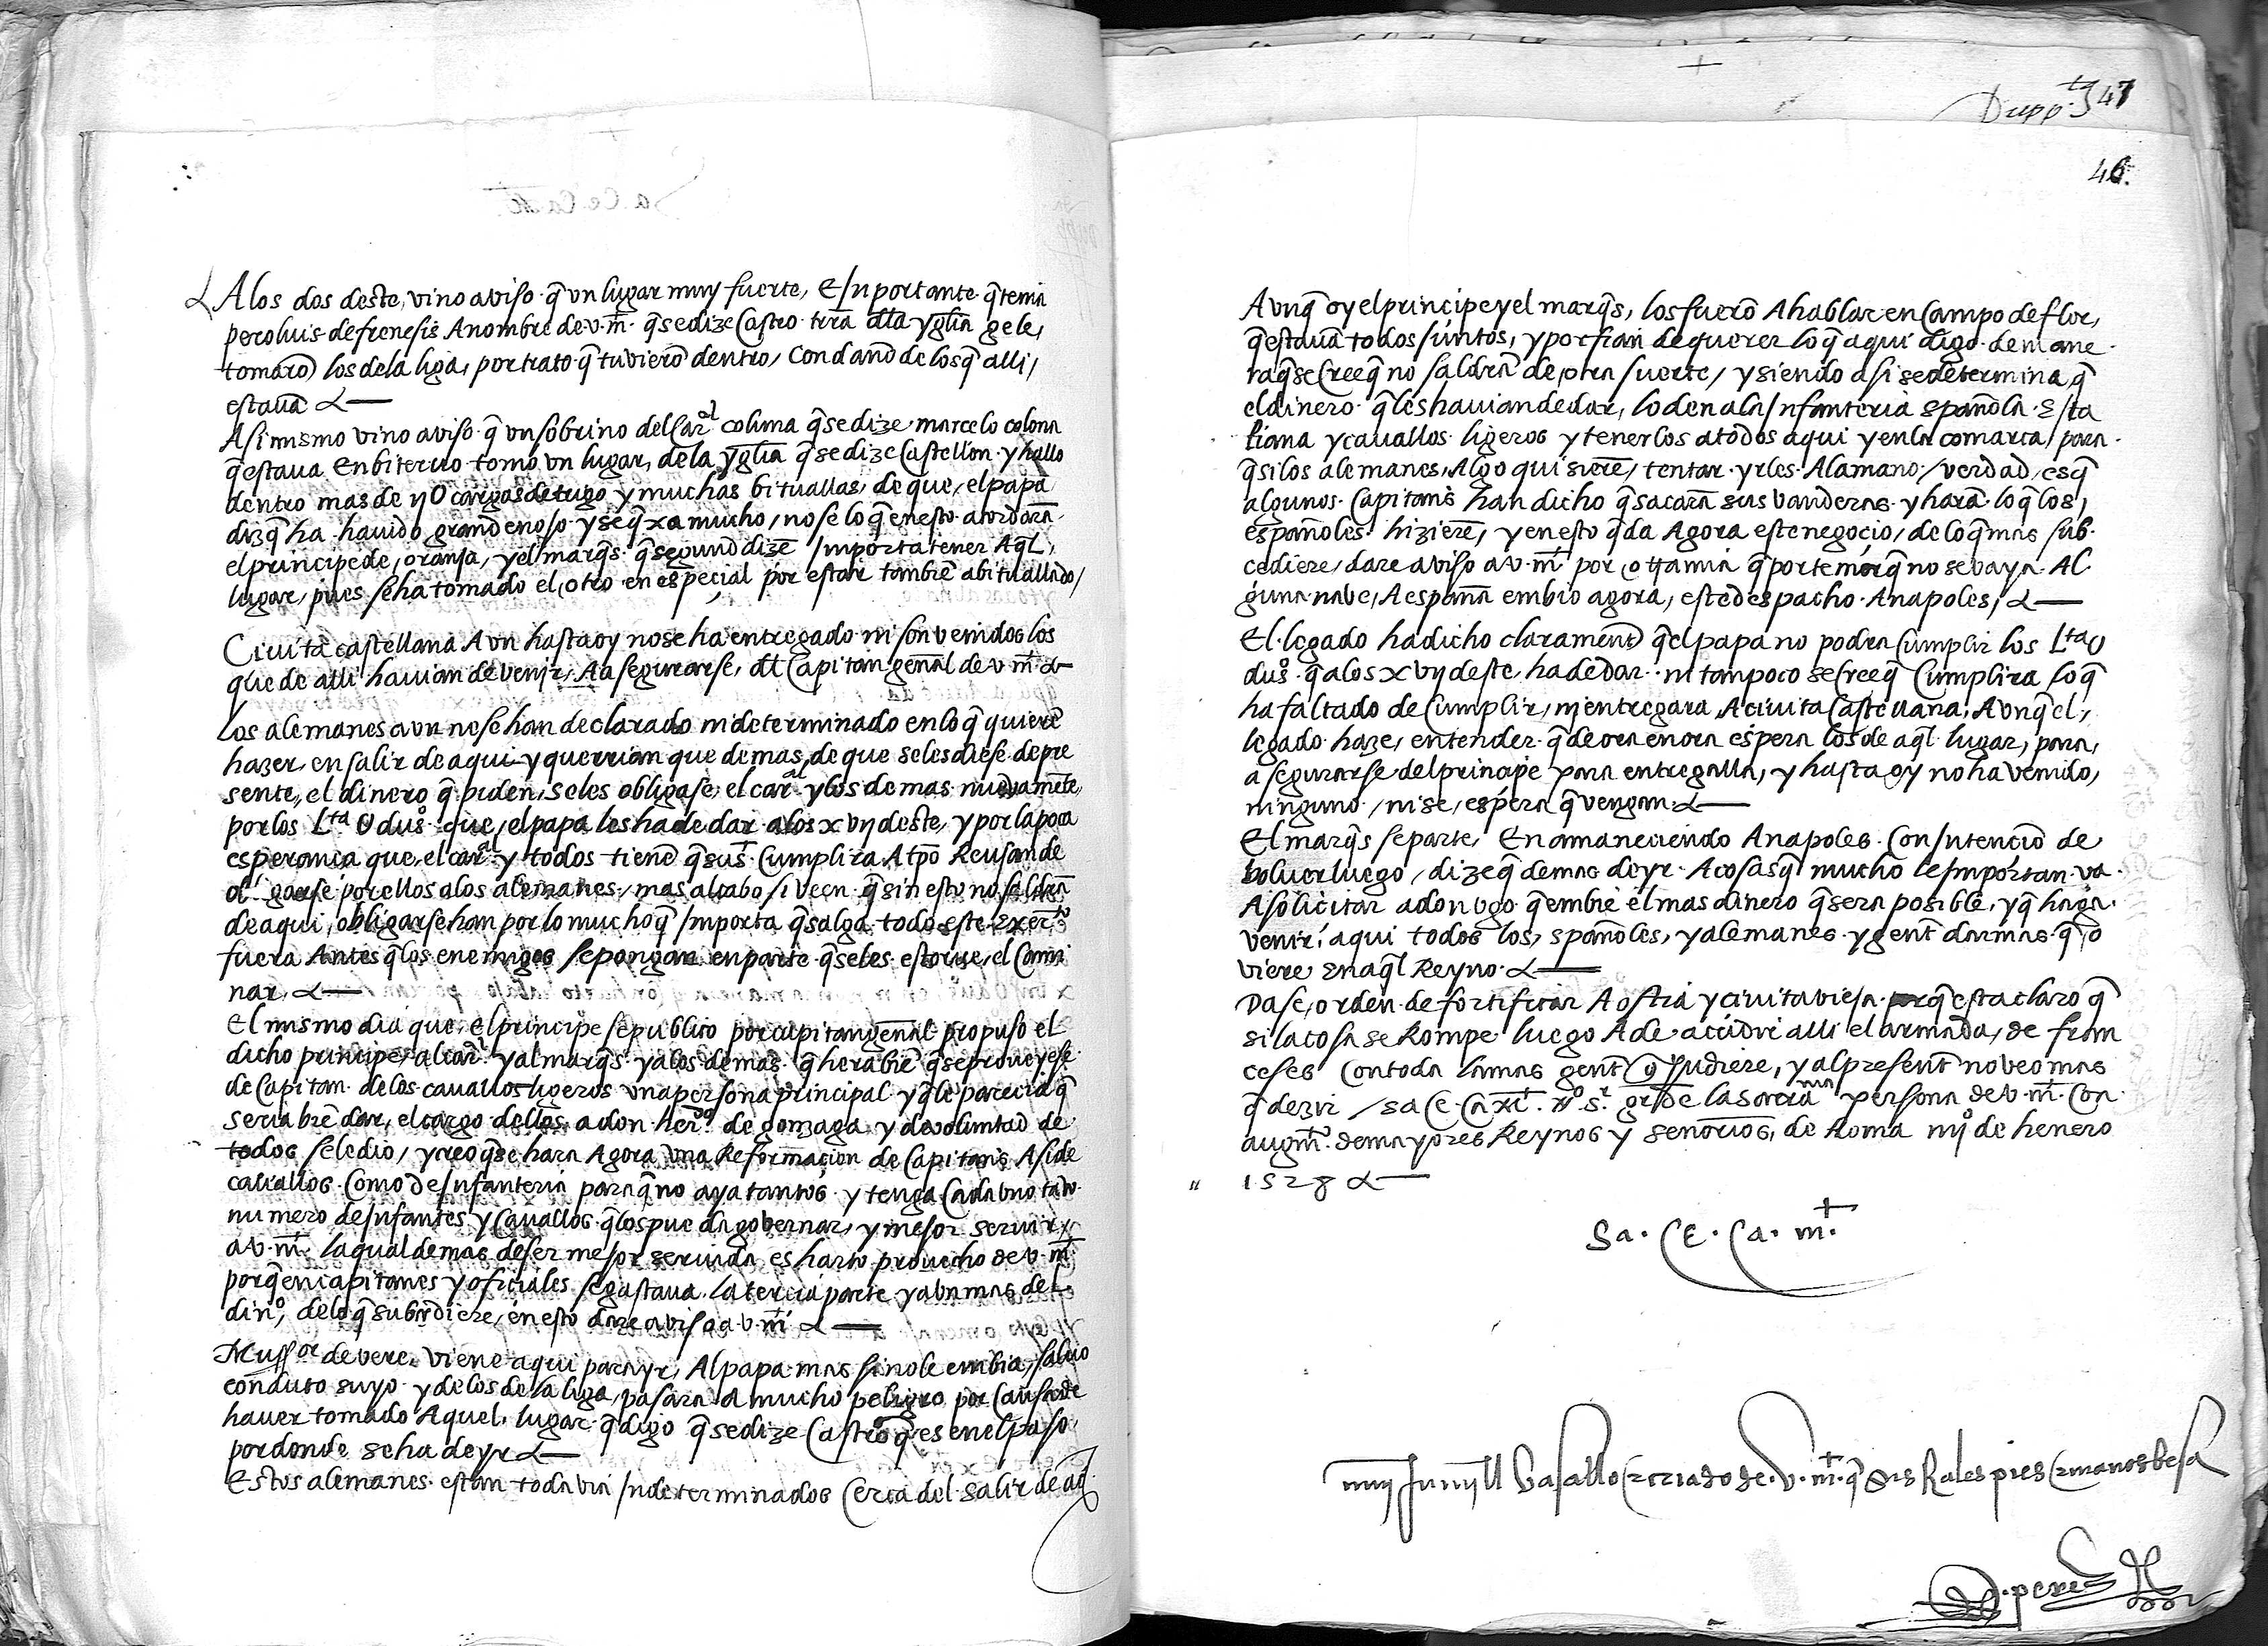 A los dos deste, vino aviso q̃ un lugar muy fuerte, E Inportante q̃ tenia
pero luis de frenesis A nombre de v. m̃t. q̃ se dize Castro trrã dłla yglĩa ge le,
tomarõ los de la liga, por trato q̃ tuvierõ dentro, con daño de los q̃ alli,
estavã
Asi mismo vino aviso q̃ un sobrino del Car^al colūna q̃ se dize marcelo colona
q̃ estava En biterbo tomo un lugar, de la yglĩa q̃ se dize Castellon y hallo
dentro mas de ij U cargas de trigo y muchas bituallas, de que, el papa
diz q̃ ha havido grand enojo y se q̃xa mucho, no se lo q̃ en esto acordarã
el principe de, oranja, y el marq̃s q̃ segund dizẽ Importa tener Aq̃l,
lugar, pues se ha tomado el, otro en especial por estar tambiẽ abituallado,
Civita castellana Aun hasta oy no se ha entregado ni son venidos los
que de alli havian de venir, A asegurarse, dł Capitan genãl de v. m̃t
los alemanes aun no se han declarado ni determinado en lo q̃ quierẽ
hazer, en salir de aqui y querrian que demas, de que se les diese de pre
sente, el dinero q̃ piden, se les obligase, el car^al y los demas nuevamẽte,
por los L^ta U dus^o que, el papa les ha de dar a los xvij deste, y por la poca
esperança que, el car^al y todos tienẽ q̃ su s^t Cumplira A tpõ Reusan de
obligarse por ellos a los alemanes, mas al cabo si veen q̃ sin esto no saldrã
de aqui, obligarse han por lo mucho q̃ Importa q̃ salga todo este exer^to
fuera Antes q̃ los enemigos se pongan en parte q̃ se les estorve, el Cami
nar,
El mismo dia que, el principe se publico por capitan genãl propuso el
dicho principe, al car^al y al marq̃s y a los demas q̃ hera biẽ q̃ se proveyese
de Capitan de los cavallos ligeros una persona principal y q̃ le parecia q̃
seria biẽ dar, el cargo dellos, a don her^do de gonzaga y de voluntad de
todos se le dio, y creo q̃ se hara Agora una Reformacion de Capitanẽs Asi de
cavallos Como de Infanteria para q̃ no aya tantos y tenga Cada uno tãto
numero de Infantes y Cavallos q̃ los pueda gobernar, y mejor servir
a v. m̃t. la qual demas de ser mejor servida es harto provecho de v. m̃t
porq̃ en capitanes y oficiales se gastava la tercia parte y aun mas del
din^o, de lo q̃ subcediere, en esto dare aviso a v. m̃t
Musᵒʳ de vere, viene aqui para yr, Al papa mas si no le embia, salvo
conduto suyo y de los de la liga, pasara a mucho peligro por Causa de
haver tomado Aquel, lugar q̃ digo q̃ se dize Castro q̃ es en el paso
por donde se ha de yr
Estos alemanes estan todavia Indeterminados Cerca del salir de aq̃
47
46.
Aunq̃ oy el principe y el marq̃s, los fuerõ A hablar en Campo de flor,
q̃ estavã todos juntos, y porfian de querer lo q̃ aqui digo de mane
ra q̃ se Cree q̃ no saldrã de, otra suerte, y siendo asi se determina q̃
el dinero q̃ les havian de dar, lo den a la Infanteria española E Ita
liana y cavallos ligeros y tenerlos a todos aqui y en la comarca, para
q̃ si los alemanes, Algo quisierẽ, tentar yrles A la mano, verdad, es q̃
algunos Capitanẽs han dicho q̃ sacarã sus vanderas y harã lo q̃ los,
españoles hizierẽ, y en esto q̃da Agora este negocio, de lo q̃ mas sub
cediere, dare aviso a v. m̃t por, otta mia q̃ por temor q̃ no se vaya Al
guna nave, A españa embio agora, este despacho A napoles,
El legado ha dicho claramente q̃ el papa no podra Cumplir los L^ta U
dus^o q̃ a los xvij deste, ha de dar ni tampoco se Cree q̃ Cumplira lo q̃
ha faltado de Cumplir, ni entregara, A civita Castellana, Aunq̃ el,
legado haze, entender q̃ de ora en ora espera los de aq̃l lugar, para,
asegurarse del principe para entregalla, y hasta oy no ha venido,
ninguno, ni se, espera q̃ vengan
El marq̃s se parte, En amaneciendo A napoles Con Intenciõ de
bolver luego, dize q̃ demas de yr A cosas q̃ mucho le Importan va
A solicitar a don ugo q̃ embie el mas dinero q̃ sera posible, y q̃ haga
venir, aqui todos los, españoles, y alemanes y gente darmas q̃, o
viere En aq̃l Reyno
Dase, orden de fortificar A ostia y civita vieja porq̃ esta claro q̃
si la cosa se Rompe luego A de acudir alli el armada, de fran
ceses Con toda la mas gente q̃ pudiere, y al presente no veo mas
q̃ dezir, sa Ce. Ca m̃t. nr̃o s^r. gr̃de la sacra persona de v. m̃t. Con
augm^to. de mayores Reynos y señorios, de Roma iiij de henero
1528
Sa. Ce. Ca. m̃t.
muy humyll Vasallo E criado de. v. m̃t. q̃ sus Rales pies E manos besa
perez